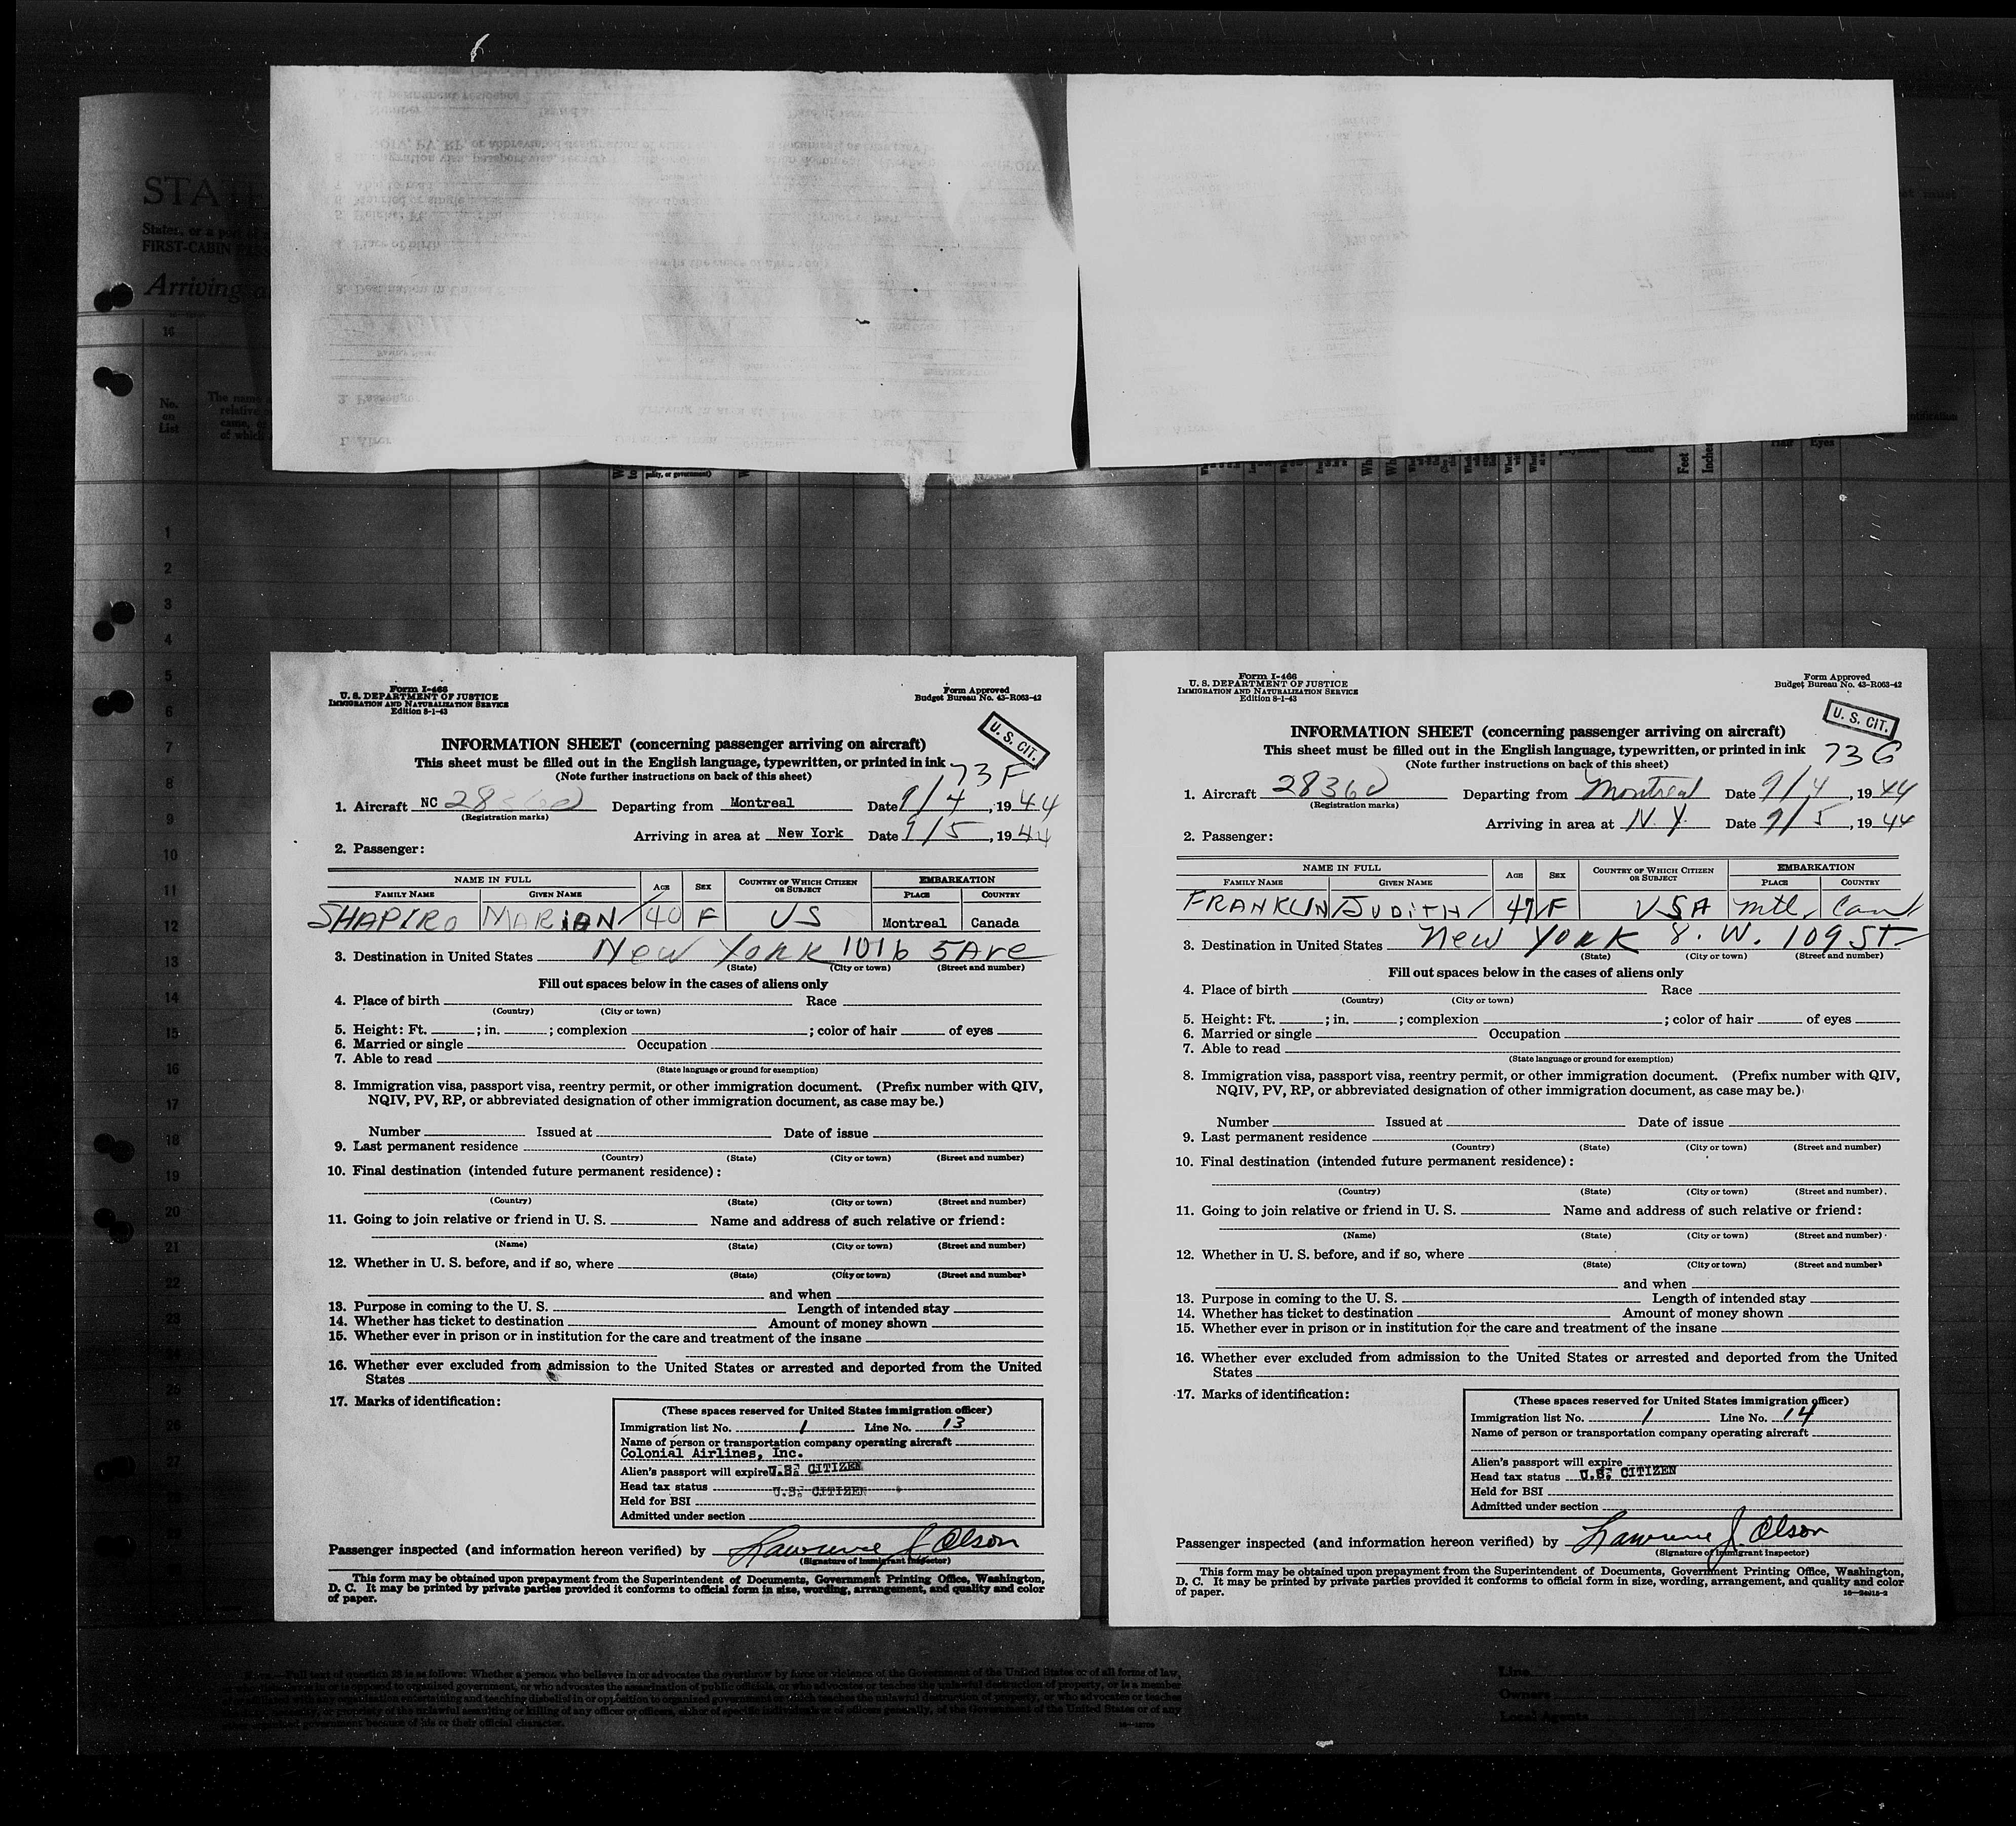 STATE
States, or a port of
FIRST-CABIN
Arriving
No.
on
List
The name
relative
came,
of which
Feet
Inches
Hair
Eyes
1
2
3
4
5
6
7
8
9
10
11
12
13
14
15
16
17
18
19
20
21
22
23
24
25
26
27
Form I-466
U. S. DEPARTMENT OF JUSTICE
IMMIGRATION AND NATURALIZATION SERVICE
Edition 8-1-43
Form Approved
Budget Bureau No. 43-R063-42
U. S. CIT.
INFORMATION SHEET (concerning passenger arriving on aircraft)
This sheet must be filled out in the English language, typewritten, or printed in ink
(Note further instructions on back of this sheet)
73F
1. Aircraft NC 28360 Departing from Montreal Date 9/4, 1944
(Registration marks)
Arriving in area at New York Date 9/5, 1944
2. Passenger:
NAME IN FULL AGE SEX COUNTRY OF WHICH CITIZEN OR SUBJECT EMBARKATION
FAMILY NAME GIVEN NAME PLACE COUNTRY
SHAPIRO MARIAN 40 F US Montreal Canada
3. Destination in United States New York 1016 5 Ave
(State) (City or town) (Street and number)
Fill out spaces below in the cases of aliens only
4. Place of birth Race
(Country) (City or town)
5. Height: Ft. ; in. ; complexion ; color of hair of eyes
6. Married or single Occupation
7. Able to read
(State language or ground for exemption)
8. Immigration visa, passport visa, reentry permit, or other immigration document. (Prefix number with QIV,
NQIV, PV, RP, or abbreviated designation of other immigration document, as case may be.)
Number Issued at Date of issue
9. Last permanent residence
(Country) (State) (City or town) (Street and number)
10. Final destination (intended future permanent residence):
(Country) (State) (City or town) (Street and number)
11. Going to join relative or friend in U. S. Name and address of such relative or friend:
(Name) (State) (City or town) (Street and number)
12. Whether in U. S. before, and if so, where
(State) (City or town) (Street and number)
and when
13. Purpose in coming to the U. S. Length of intended stay
14. Whether has ticket to destination Amount of money shown
15. Whether ever in prison or in institution for the care and treatment of the insane
16. Whether ever excluded from admission to the United States or arrested and deported from the United
States
17. Marks of identification:
(These spaces reserved for United States immigration officer)
Immigration list No. 1 Line No. 13
Name of person or transportation company operating aircraft
Colonial Airlines, Inc.
Alien's passport will expire U.S. CITIZEN
Head tax status U.S. CITIZEN
Held for BSI
Admitted under section
Passenger inspected (and information hereon verified) by Lawrence J. Olson
(Signature of immigrant inspector)
This form may be obtained upon prepayment from the Superintendent of Documents, Government Printing Office, Washington,
D. C. It may be printed by private parties provided it conforms to official form in size, wording, arrangement, and quality and color
of paper.
Form I-466
U. S. DEPARTMENT OF JUSTICE
IMMIGRATION AND NATURALIZATION SERVICE
Edition 8-1-43
Form Approved
Budget Bureau No. 43-R063-42
U. S. CIT.
INFORMATION SHEET (concerning passenger arriving on aircraft)
This sheet must be filled out in the English language, typewritten, or printed in ink
(Note further instructions on back of this sheet)
73G
1. Aircraft 28360 Departing from Montreal Date 9/4, 1944
(Registration marks)
Arriving in area at N.Y. Date 9/5, 1944
2. Passenger:
NAME IN FULL AGE SEX COUNTRY OF WHICH CITIZEN OR SUBJECT EMBARKATION
FAMILY NAME GIVEN NAME PLACE COUNTRY
FRANKLIN JUDITH 47 F USA Mtl. Can
3. Destination in United States New York 8. W. 109 ST
(State) (City or town) (Street and number)
Fill out spaces below in the cases of aliens only
4. Place of birth Race
(Country) (City or town)
5. Height: Ft. ; in. ; complexion ; color of hair of eyes
6. Married or single Occupation
7. Able to read
(State language or ground for exemption)
8. Immigration visa, passport visa, reentry permit, or other immigration document. (Prefix number with QIV,
NQIV, PV, RP, or abbreviated designation of other immigration document, as case may be.)
Number Issued at Date of issue
9. Last permanent residence
(Country) (State) (City or town) (Street and number)
10. Final destination (intended future permanent residence):
(Country) (State) (City or town) (Street and number)
11. Going to join relative or friend in U. S. Name and address of such relative or friend:
(Name) (State) (City or town) (Street and number)
12. Whether in U. S. before, and if so, where
(State) (City or town) (Street and number)
and when
13. Purpose in coming to the U. S. Length of intended stay
14. Whether has ticket to destination Amount of money shown
15. Whether ever in prison or in institution for the care and treatment of the insane
16. Whether ever excluded from admission to the United States or arrested and deported from the United
States
17. Marks of identification:
(These spaces reserved for United States immigration officer)
Immigration list No. 1 Line No. 14
Name of person or transportation company operating aircraft
Alien's passport will expire
Head tax status U.S. CITIZEN
Held for BSI
Admitted under section
Passenger inspected (and information hereon verified) by Lawrence J. Olson
(Signature of immigrant inspector)
This form may be obtained upon prepayment from the Superintendent of Documents, Government Printing Office, Washington,
D. C. It may be printed by private parties provided it conforms to official form in size, wording, arrangement, and quality and color
of paper.
Full text of question 28 is as follows: Whether a person who believes in or advocates the overthrow by force or violence of the Government of the United States or of all forms of law,
or is opposed to organized government, or who advocates the assassination of public officials, or who advocates or teaches the unlawful destruction of property, or is a member
of or affiliated with any organization entertaining and teaching disbelief in or opposition to organized government or which teaches the unlawful destruction of property, or who advocates or teaches
or propriety of the unlawful assaulting or killing of any officer or officers, either of specific individuals or of officers generally, of the Government of the United States or of any
government because of his or their official character.
Line
Owners
Local Agents